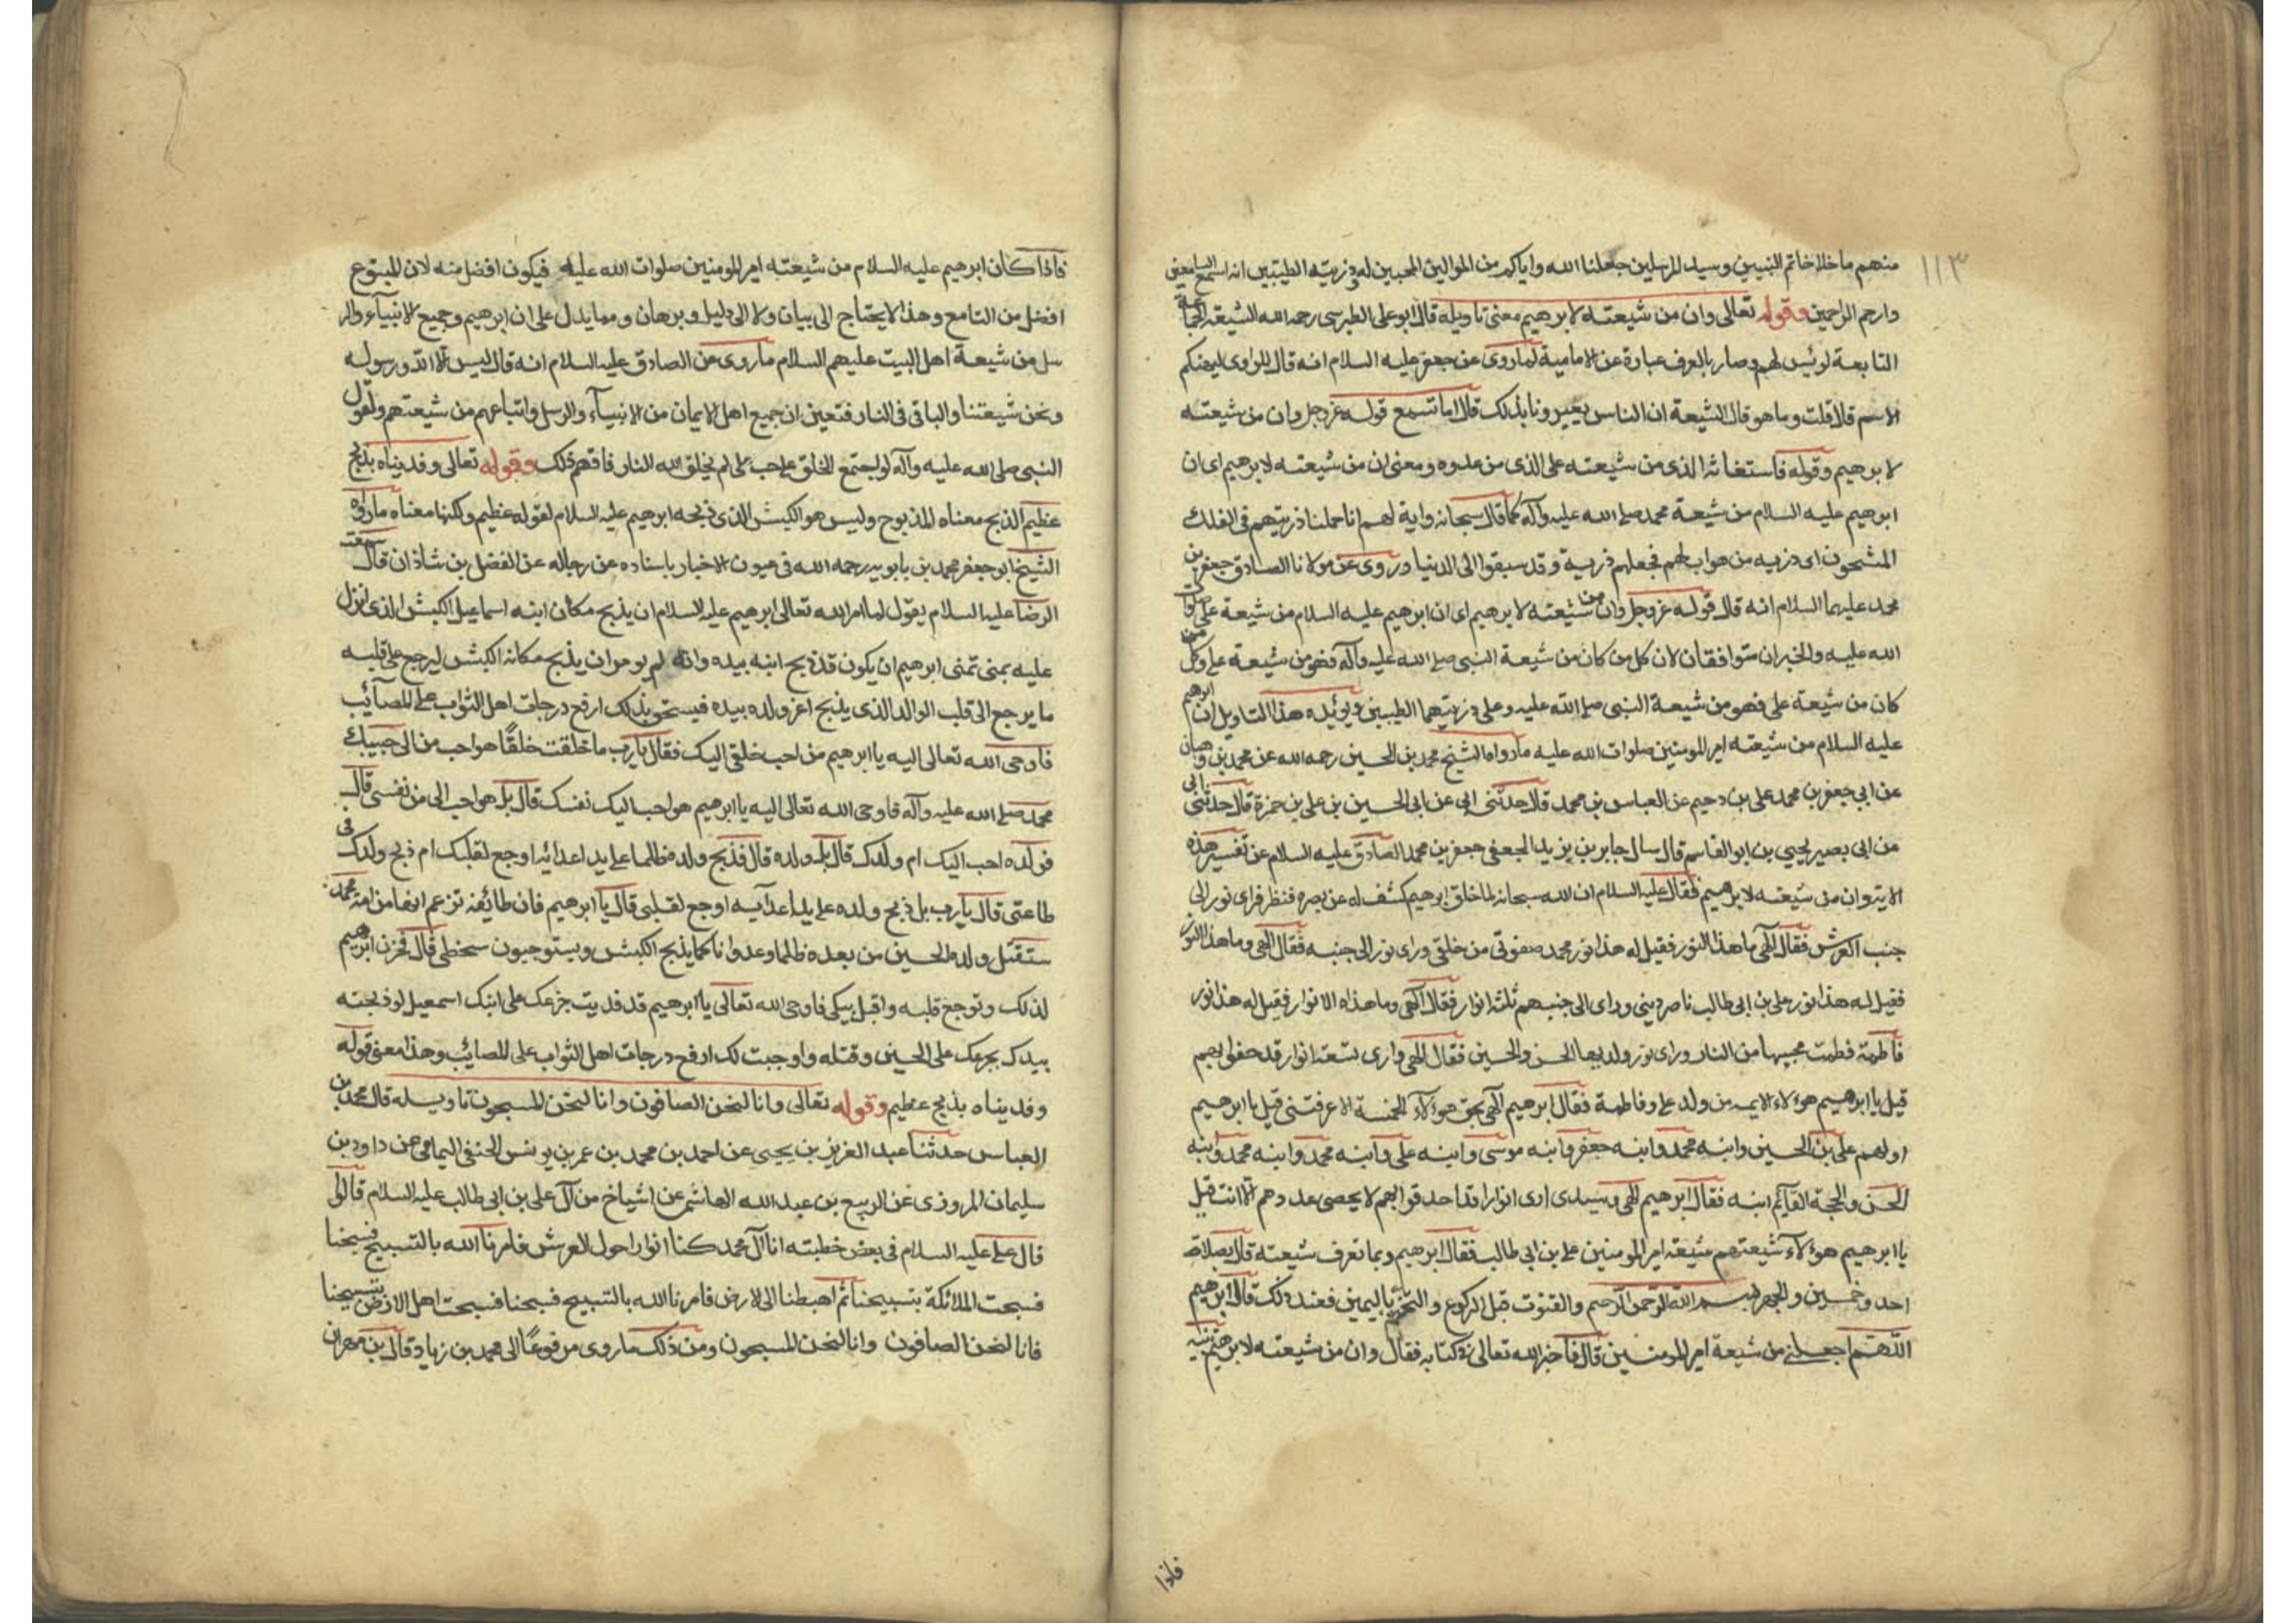 ١١٣
منهم ما خلا خاتم النبيين وسيد المرسلين جعلنا الله واياكم من الموالين المحبين له وذريته الطيبين انه اسمع السامعين
وارحم الراحمين وقوله تعالى وان من شيعته لابرهيم معنى تاويله قال ابو على الطبرسى رحمه الله الشيعة الجماعة
التابعة لرئيس لهم وصار بالعرف عبارة عن الامامية لما روى عن جعفر عليه السلام انه قال للراوى ليهنكم
الاسم قال قلت وما هو قال الشيعة ان الناس يعيرونا بذلك قال اما تسمع قوله عز وجل وان من شيعته
لابرهيم وقوله فاستغاثه الذى من شيعته على الذى من عدوه ومعنى ان من شيعته لابرهيم اى ان
ابرهيم عليه السلام من شيعة محمد صلى الله عليه وآله كما قال سبحانه واية لهم انا حملنا ذريتهم فى الفلك
المشحون اى ذرية من هو اب لهم فجعلهم ذرية وقد سبقوا الى الدنيا وروى عن مولانا الصادق جعفر بن
محمد عليهما السلام انه قال قوله عز وجل وان من شيعته لابرهيم اى ان ابرهيم عليه السلام من شيعة على صلوات
الله عليه والخبران متوافقان لان كل من كان من شيعة النبى صلى الله عليه وآله فهو من شيعة على وكل من
كان من شيعة على فهو من شيعة النبى صلى الله عليه وعلى ذريتهما الطيبين ويؤيده هذا التاويل ان ابرهيم
عليه السلام من شيعته امير المومنين صلوات الله عليه ما رواه الشيخ محمد بن الحسين رحمه الله عن محمد بن وهبان
عن ابي جعفر بن محمد على بن رحيم عن العباس بن محمد قال حدثنى ابى عن ابى الحسين بن على بن حمزة قال حدثنى ابى
من ابى بصير يحيى بن ابو القاسم قال سال جابر بن يزيد الجعفى جعفر بن محمد الصادق عليه السلام عن تفسير هذه
الاية وان من شيعته لابرهيم فقال عليه السلام ان الله سبحانه لما خلق ابرهيم كشف له عن بصره فنظر فراى نور الى
جنب العرش فقال الهى ما هذا النور فقيل له هذا نور محمد صفوتى من خلقى وراى نور الى جنبه فقال الهى وما هذا النور
فقيل له هذا نور على بن ابى طالب ناصر دينى وراى الى جنبهم ثلثة انوار فقال الهى وما هذه الانوار فقيل له هذا نور
فاطمة فطمت محبيها من النار وراى نور ولديها الحسن والحسين فقال الهى وارى تسعة انوار قد حفوا بهم
قيل يا ابرهيم هؤلاء الايمه من ولد على وفاطمة فقال ابرهيم الهى بحق هؤلاء الخمسة الا عرفتنى قيل يا ابرهيم
اولهم على بن الحسين وابنه محمد وابنه جعفر وابنه موسى وابنه على وابنه محمد وابنه محمد وابنه
الحسن والحجة القايم ابنه فقال ابرهيم الهى وسيدى ارى انوارا قد احدقوا بهم لا يحصى عددهم الا انت قيل
يا ابرهيم هؤلاء شيعتهم شيعة امير المومنين على بن ابى طالب فقال ابرهيم وبما تعرف شيعته قال بصلاة
احد وخمسين والجهر ببسم الله الرحمن الرحيم والقنوت قبل الركوع والتختم باليمين فعند ذلك قال ابرهيم
اللهم اجعلنى من شيعة امير المومنين قال فاخبر الله تعالى فى كتابه فقال وان من شيعته لابرهيم
فاذا
فاذا كان ابرهيم عليه السلام من شيعته امير المومنين صلوات الله عليه فيكون افضل منه لان المتبوع
افضل من التابع وهذا لا يحتاج الى بيان ولا الى دليل وبرهان ومما يدل على ان ابرهيم وجميع الانبيآء والر
سل من شيعة اهل البيت عليهم السلام ما روى عن الصادق عليه السلام انه قال ليس الا الله ورسوله
ونحن شيعتنا والباقى فى النار فتعين ان جميع اهل الايمان من الانبيآء والرسل واتباعهم من شيعتهم ولقول
النبى صلى الله عليه وآله لو اجتمع الخلق على حب على لم يخلق الله النار فافهم ذلك وقوله تعالى وفديناه بذبح
عظيم الذبح معناه المذبوح وليس هو الكبش الذى ذبحه ابرهيم عليه السلام لقوله عظيم ولكنها معناه ما رواه
الشيخ ابو جعفر محمد بن بابويه رحمه الله فى عيون الاخبار باسناده عن رجاله عن الفضل بن شاذان قال سمعت
الرضا عليه السلام يقول لما امر الله تعالى ابرهيم عليه السلام ان يذبح مكان ابنه اسماعيل الكبش الذى انزل
عليه بمنى تمنى ابرهيم ان يكون قد ذبح ابنه بيده وانه لم يومر ان يذبح مكانه الكبش ليرجع على قلبه
ما يرجع الى قلب الوالد الذى يذبح اعز ولده بيده فيستحق بذلك ارفح درجات اهل الثواب على المصآئب
فاوحى الله تعالى اليه يا ابرهيم من احب خلقى اليك فقال يا رب ما خلقت خلقًا هو احب من الى حبيبك
محمد صلى الله عليه وآله فاوحى الله تعالى اليه يا ابرهيم هو احب اليك نفسك قال بل هو احب الى من نفسى قال
فولده احب اليك ام ولدك قال بل ولده قال فذبح ولده ظلما على يد اعدائه اوجع لقلبك ام ذبح ولدك فى
طاعتى قال يا رب بل ذبح ولده على يد اعدآيه اوجع لقلبى قال يا ابرهيم فان طائفه تزعم انها من امة محمد
ستقتل ولده الحسين من بعده ظلما وعدوانا كما يذبح الكبش ويستوجبون سخطى قال فحزن ابرهيم
لذلك وتوجع قلبه واقبل يبكى فاوحى الله تعالى يا ابرهيم قد فديت جزعك على ابنك اسمعيل لو ذبحته
بيدك بجزعك على الحسين وقتله واوجبت لك ارفح درجات اهل الثواب على المصايب وهذا معنى قوله
وفديناه بذبح عظيم وقوله تعالى وانا لنحن الصافون وانا لنحن المسبحون تاويله قال محمد بن
العباس حدثنا عبد العزيز بن يحيى عن احمد بن محمد بن عمر بن يونس الحنفى اليمامى عن داود بن
سليمان المروذى عن الربيع بن عبد الله الهاشمى عن اشياخ من آل على بن ابى طالب عليه السلام قالوا
قال على عليه السلام فى بعض خطبته انا آل محمد كنا انوارا حول العرش فامرنا الله بالتسبيح فسبحنا
فسبحت الملائكة بتسبيحنا ثم اهبطنا الى الارض فامرنا الله بالتسبيح فسبحنا فسبحت اهل الارض بتسبيحنا
فانا لنحن الصافون وانا لنحن المسبحون ومن ذلك ما روى مرفوعًا الى محمد بن زياد قال بن مهران